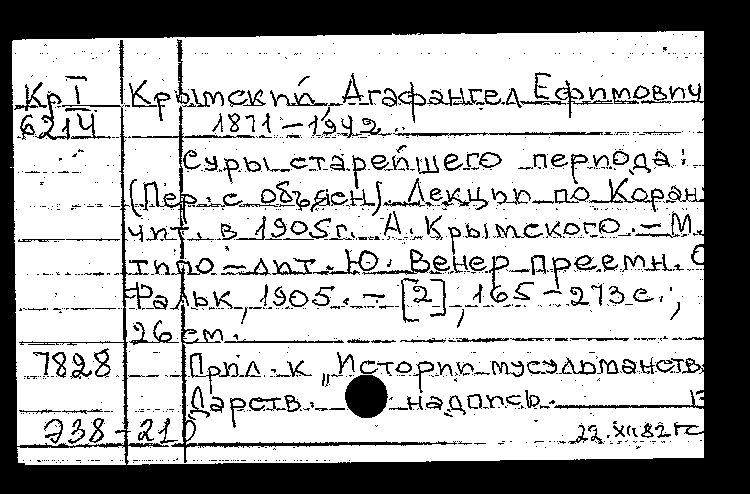 Кр I Крымский, Агафангел Ефимович
6214 1871-1942.
Суры старейшего периода:
(Пер. с объясн). Лекции по Коран
чит. в 1905г. А. Крымского. - М.
типо-лит. Ю. Венер преемн. О
Фальк, 1905. - [2], 165-273 с.;
26 см.
7828 Прил. к „Истории мусульманств
Дарств. надпись. 13
Э38-210 22.XII.82 гс